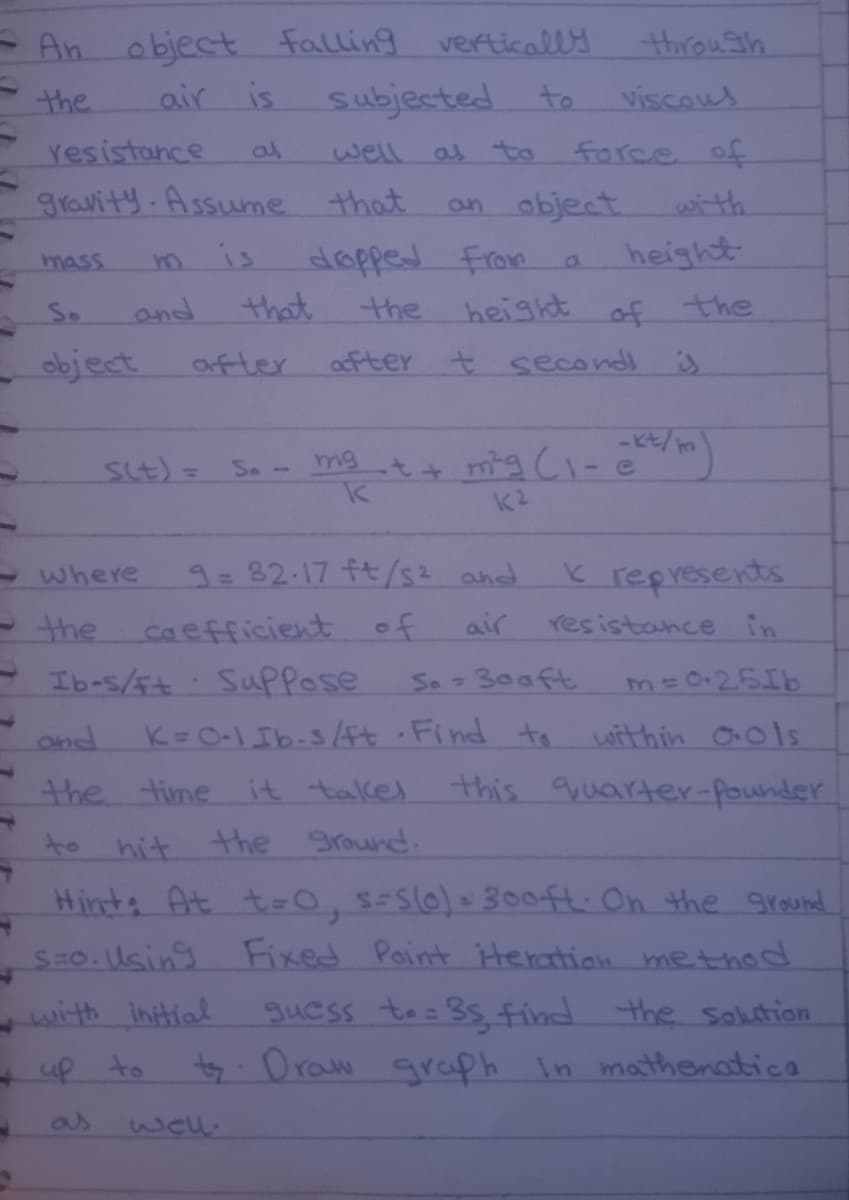 An object falling vertically through
the air is subjected to viscous
resistance as well as to force of
gravity. Assume that an object with
mass m is dropped from a height
So and that the height of the
object after after t seconds is
S(t) = So - mg/K t + m²g/K² (1 - e^-Kt/m)
where g = 32.17 ft/s² and K represents
the coefficient of air resistance in
Ib-s/ft. Suppose So = 300ft m = 0.25Ib
and K = 0.1 Ib.s/ft. Find to within 0.01s
the time it takes this quarter-pounder
to hit the ground.
Hint: At t=0, s=S(0)=300ft. On the ground
s=0. Using Fixed Point iteration method
with initial guess to = 3s, find the solution
up to t7. Draw graph in mathematica
as well.